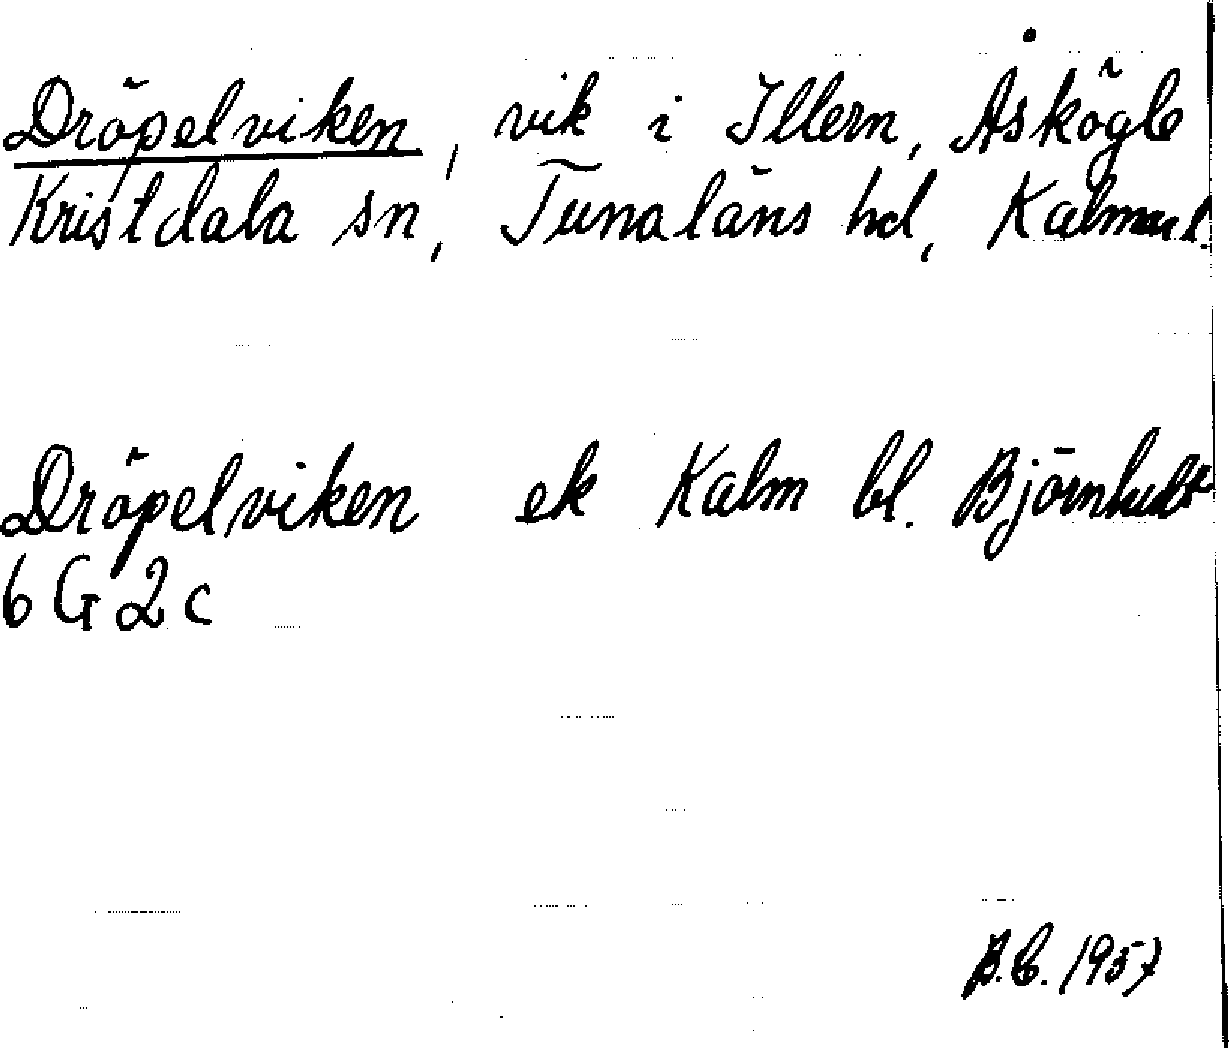 Dröpelviken, vik i Illern, Åskögle
Kristdala sn, Tunaläns hd, Kalmar l.
Dröpelviken ek Kalm bl. Björnhult
6 G 2 c
B.E. 1957